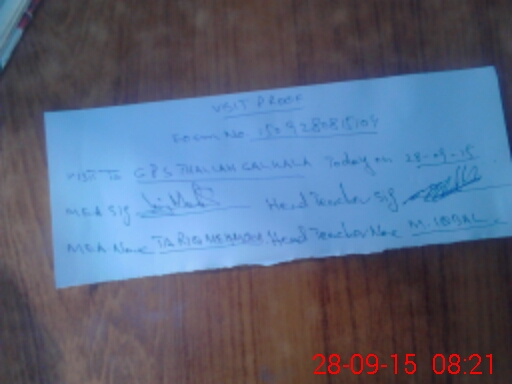 VISIT PROOF
Form No.
Visit To GPS THALLAH Today on 28-09-15.
MEA Sig Head Teacher Sig
MEA Name TARIQ MEHMOOD Head Teacher Name M. IQBAL
28-09-15 08:21